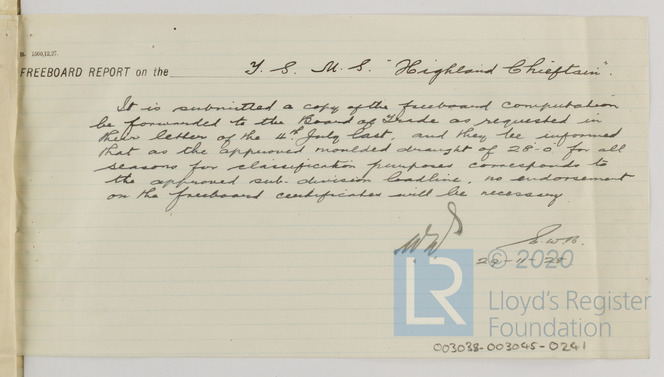 1500,12,27.
FREEBOARD REPORT on the T. S. M. S. "Highland Chieftain".
It is submitted a copy of the freeboard computation
be forwarded to the Board of Trade as requested in
their letter of the 4th July last, and they be informed
that as the approved moulded draught of 28'-0" for all
seasons for classification purposes corresponds to
the approved sub-division loadline, no endorsement
on the freeboard certificates will be necessary.
© 2020
LR
Lloyd's Register
Foundation
003038-003045-0241